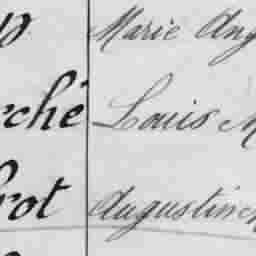 p Marie Ang
rché Louis M
rot Augustin